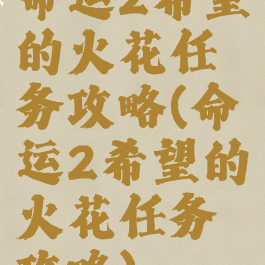 命运2希望
的火花任
务攻略(命
运2希望的
火花任务
攻略)